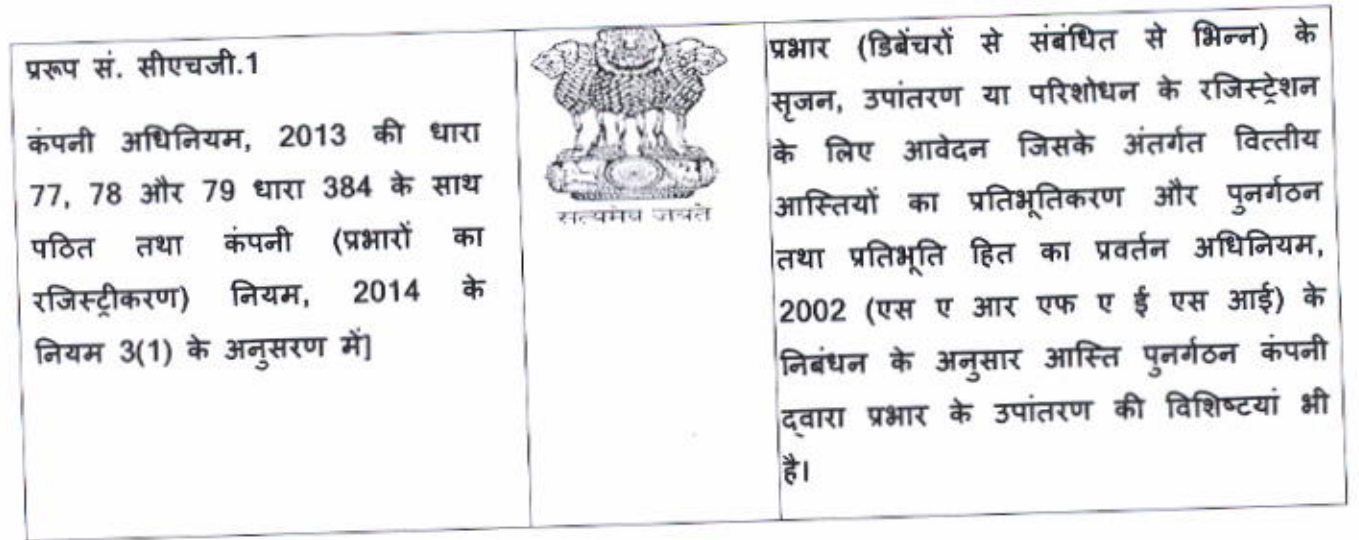 प्ररूप सं. सीएचजी.1
कंपनी अधिनियम, 2013 की धारा
77, 78 और 79 धारा 384 के साथ
पठित तथा कंपनी (प्रभारों का
रजिस्ट्रीकरण) नियम, 2014 के
नियम 3(1) के अनुसरण में]
सत्यमेव जयते
प्रभार (डिबेंचरों से संबंधित से भिन्न) के
सृजन, उपांतरण या परिशोधन के रजिस्ट्रेशन
के लिए आवेदन जिसके अंतर्गत वित्तीय
आस्तियों का प्रतिभूतिकरण और पुनर्गठन
तथा प्रतिभूति हित का प्रवर्तन अधिनियम,
2002 (एस ए आर एफ ए ई एस आई) के
निबंधन के अनुसार आस्ति पुनर्गठन कंपनी
द्वारा प्रभार के उपांतरण की विशिष्टयां भी
है।